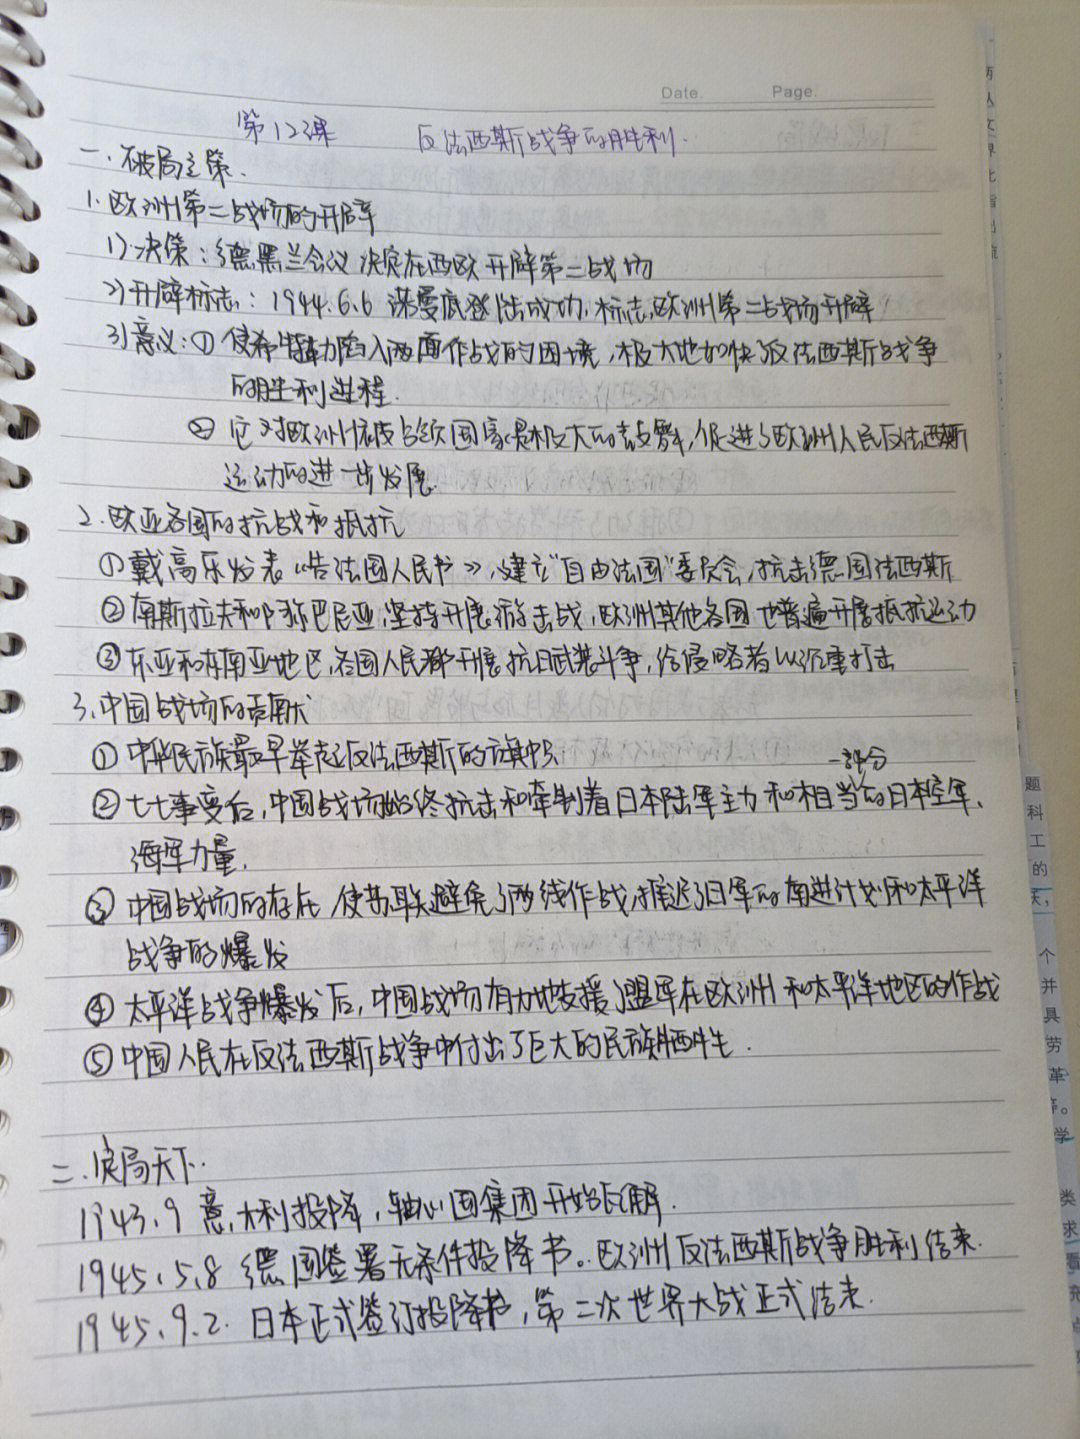 Date. Page.
第12课 反法西斯战争的胜利.
一.破局之策.
1.欧洲第二战场的开辟
1).决策:德黑兰会议决定在西欧开辟第二战场
2)开辟标志:1944.6.6 诺曼底登陆成功,标志欧洲第二战场开辟
3)意义:①使希特勒陷入两面作战的困境,极大地加快了反法西斯战争
的胜利进程.
②它对欧洲被占领国家是极大的鼓舞,促进了欧洲人民反法西斯
运动的进一步发展.
2.欧亚各国的抗战和抵抗
①戴高乐发表《告法国人民书》,建立“自由法国”委员会,抗击德国法西斯
②南斯拉夫和阿尔巴尼亚,坚持开展游击战,欧洲其他各国也普遍开展抵抗运动
③东亚和东南亚地区,各国人民都开展抗日武装斗争,给侵略者以沉重打击
3.中国战场的贡献
①中华民族最早举起反法西斯的旗帜
一部分
②七七事变后,中国战场始终抗击和牵制着日本陆军主力和相当的日本空军、
海军力量.
③中国战场的存在,使苏联避免了两线作战,推迟了日军的南进计划和太平洋
战争的爆发
④太平洋战争爆发后,中国战场有力地支援了盟军在欧洲和太平洋地区的作战
⑤中国人民在反法西斯战争中付出了巨大的民族牺牲.
二.定局天下.
1943.9 意大利投降,轴心国集团开始瓦解.
1945.5.8 德国签署无条件投降书。欧洲反法西斯战争胜利结束.
1945.9.2. 日本正式签订投降书,第二次世界大战正式结束.
题
科
工
的
天,
个
并
具
劳
革
等。
学
类
求
看